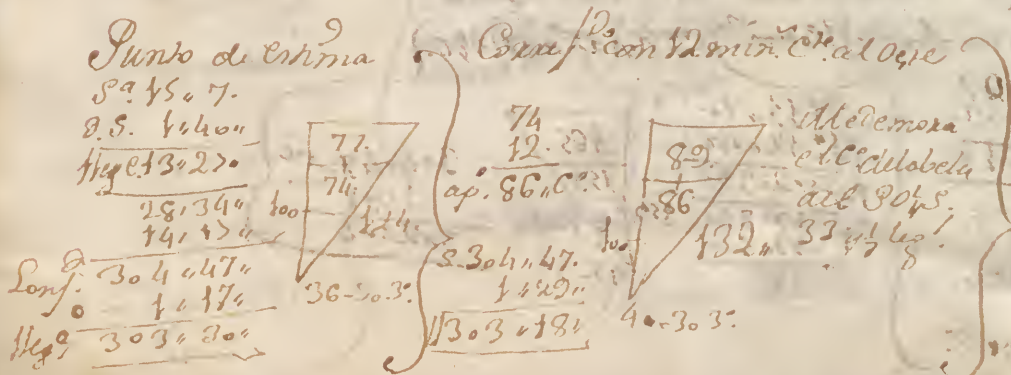 Punto de estima
Sa. 15,, 7.
D.S. 1,,40,,
Llegé 13,,27,,
28,,34,,
14,,17,,
Longd. 304,,47,,
o 1,,17,,
Llega 303,,30,,
77.
74.
100
124.
36-30 3.
Corre/Do con 12 min. Cte al Oeste
74
12.
ap. 86,,Co
S. 304,,47.
1,,29,,
303,,18,,
89.
86
100
132,,
40-30 3.
Me demora
el Co de
al SO4S.
33 leg